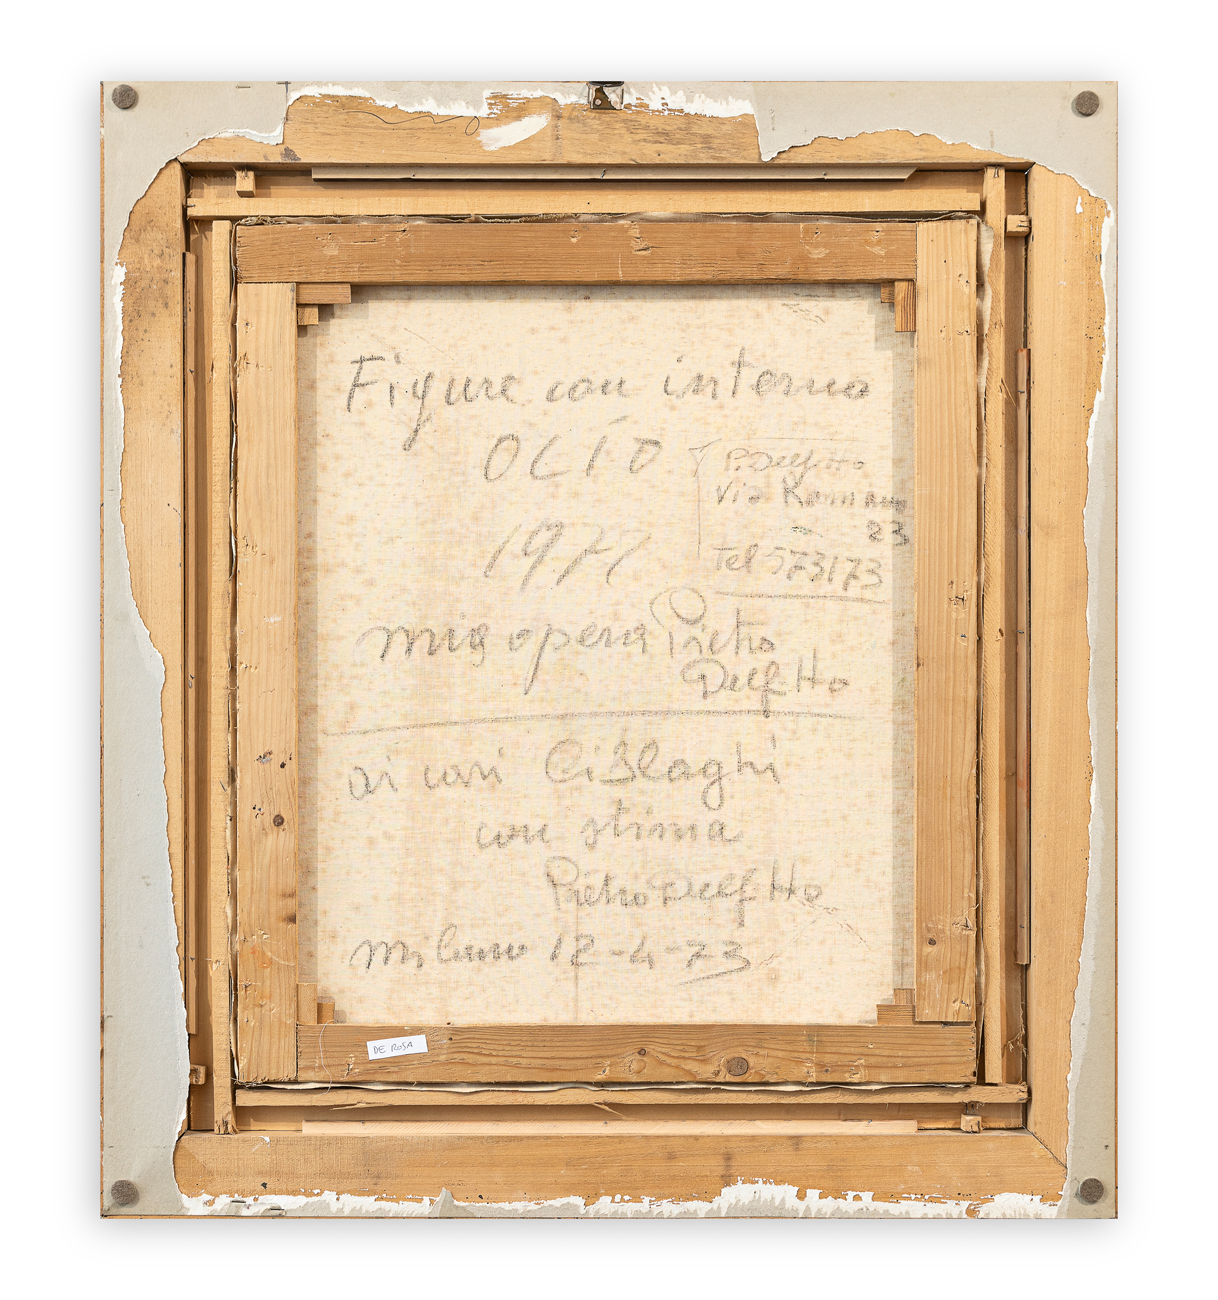 Figure con interno
OLIO
P. Delfitto
Via
23
Tel 573173
1971
mia opera Pietro
Delfitto
ai cari Cislaghi
con stima
Pietro Delfitto
Milano 12-4-73
DE ROSA